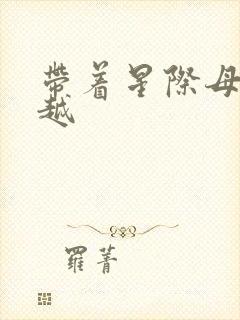 带着星際母
越
羅菁